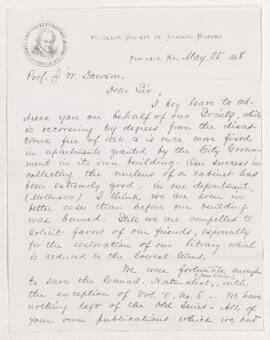 PORTLAND SOCIETY OF NATURAL HISTORY,
PORTLAND, ME. May 25 1868
Prof. J. W. Dawson,
Dear Sir,
I beg leave to ad-
dress you on behalf of our Society, which
is recovering by degrees from the disas-
trous fire of 1866 & is once more fixed
in apartments granted by the City Govern-
ment in its own building. Our success in
collecting the nucleus of a cabinet has
been extremely good – in one department,
(Mollusca) I think we are even in
better case than before our building
was burned. Still we are compelled to
solicit favors of our friends, especially
for the restoration of our library, which
is reduced to the lowest terms.
We were fortunate enough
to save the Canad. Naturalist, with
the exception of Vol. I, No. 6 – We have
nothing left of the Old Series. All of
your own publications which we had